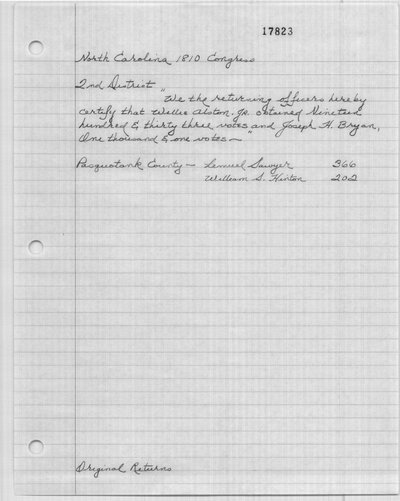 17823
North Carolina 1810 Congress
2nd District
"We the returning officers hereby
certify that Willis Alston, Jr. obtained Nineteen
hundred & thirty three votes, and Joseph H. Bryan,
One thousand & one votes"—
Pasquotank County — Lemuel Sawyer 366
William S. Hinton 202
Original Returns